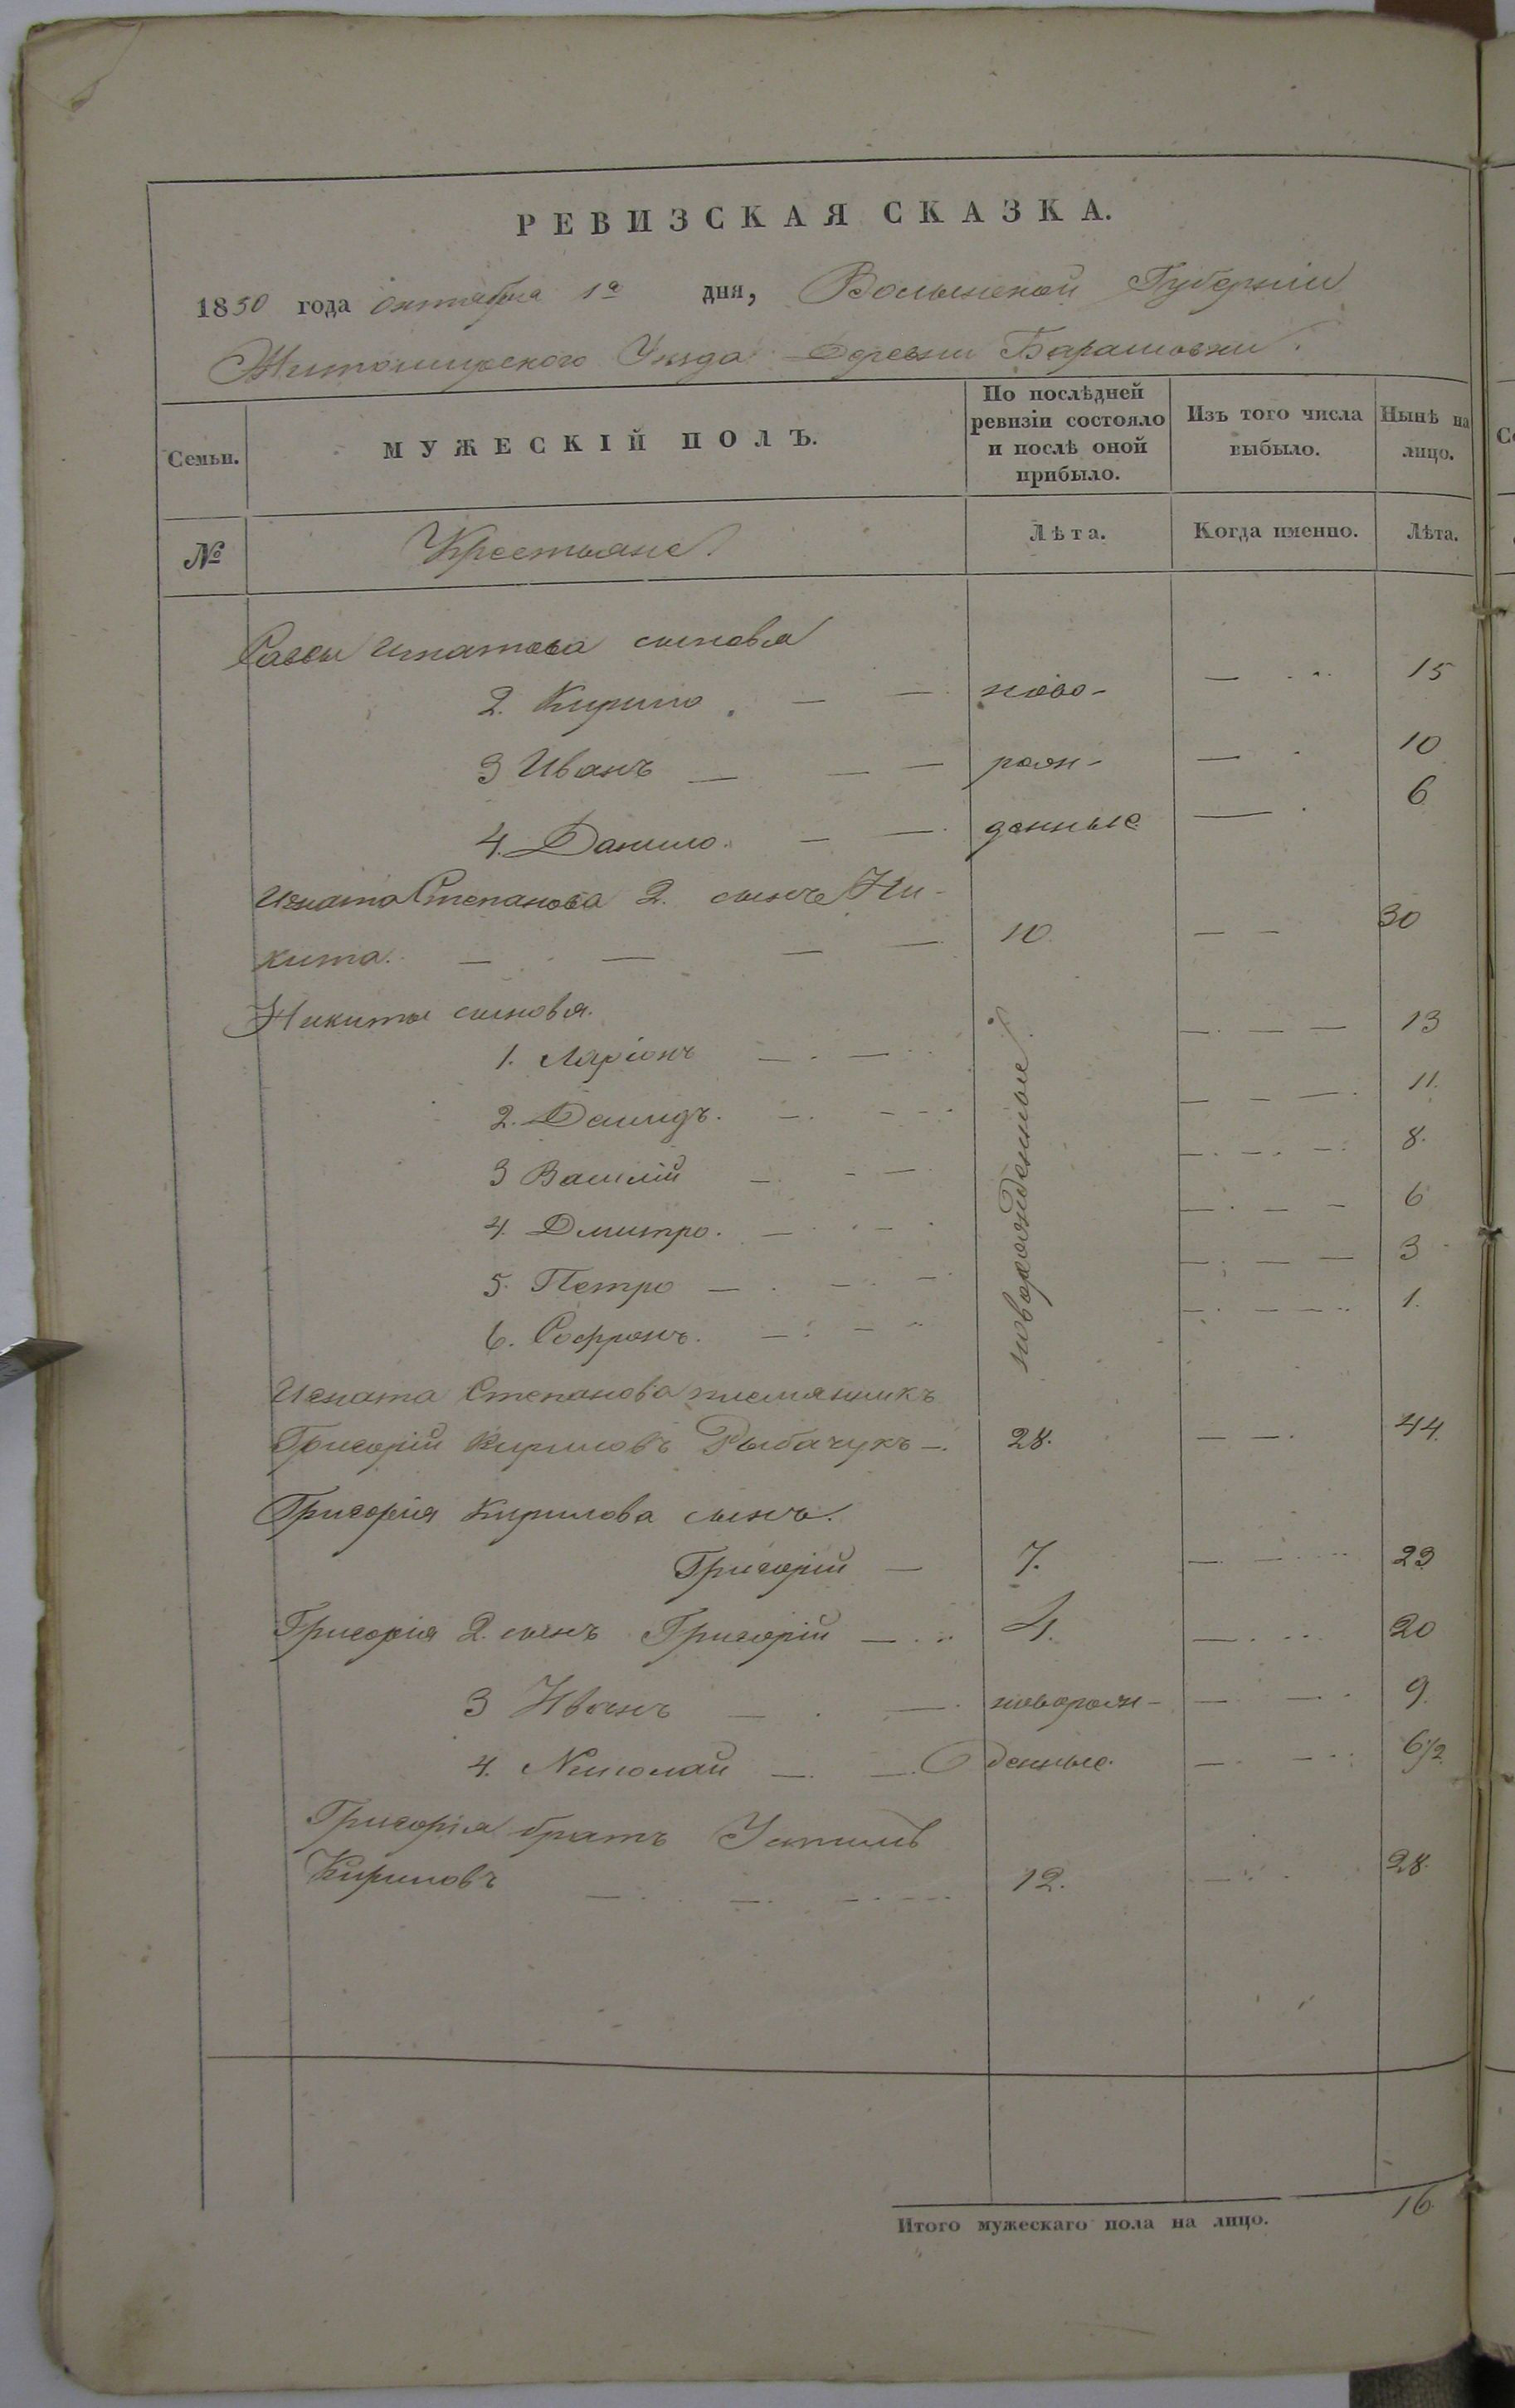 РЕВИЗСКАЯ СКАЗКА.
1850 года октября 1го дня, Волынской Губерніи
Житомирского Уезда Деревни Барашовки.
Семьи. МУЖЕСКІЙ ПОЛЪ. По послѣдней ревизіи состояло и послѣ оной прибыло. Изъ того числа выбыло. Нынѣ на лицо.
№ Крестьяне. Лѣта. Когда именно. Лѣта.
Саввы Игнатова сыновья
2. Кирило — — ново- — 15
3 Иванъ — — — рож- — 10
4. Данило. — — денные — 6
Игната Степанова 2. сынъ Ни-
кита. — — — — 10. — — 30
Никиты сыновья. новорожденные.
1. Ларіонъ — — — — — 13
2. Давидъ. — — — — — 11.
3 Василій — — — — — — 8.
4. Дмитро. — — — — — 6
5. Петро — — — — — — 3
6. Софронъ. — — — — — 1.
Игната Степанова племянникъ
Григорій Кириловъ Рыбачукъ — 28. — — 44.
Григорія Кирилова сынъ.
Григорій — 7. — — 23
Григорія 2. сынъ Григорій — 4. — 20
3 Иванъ — — новорож- — — 9.
4. Николай — — денные. — — 6 1/2
Григорія братъ
Кириловъ — — — 12. — 28.
Итого мужескаго пола на лицо. 16